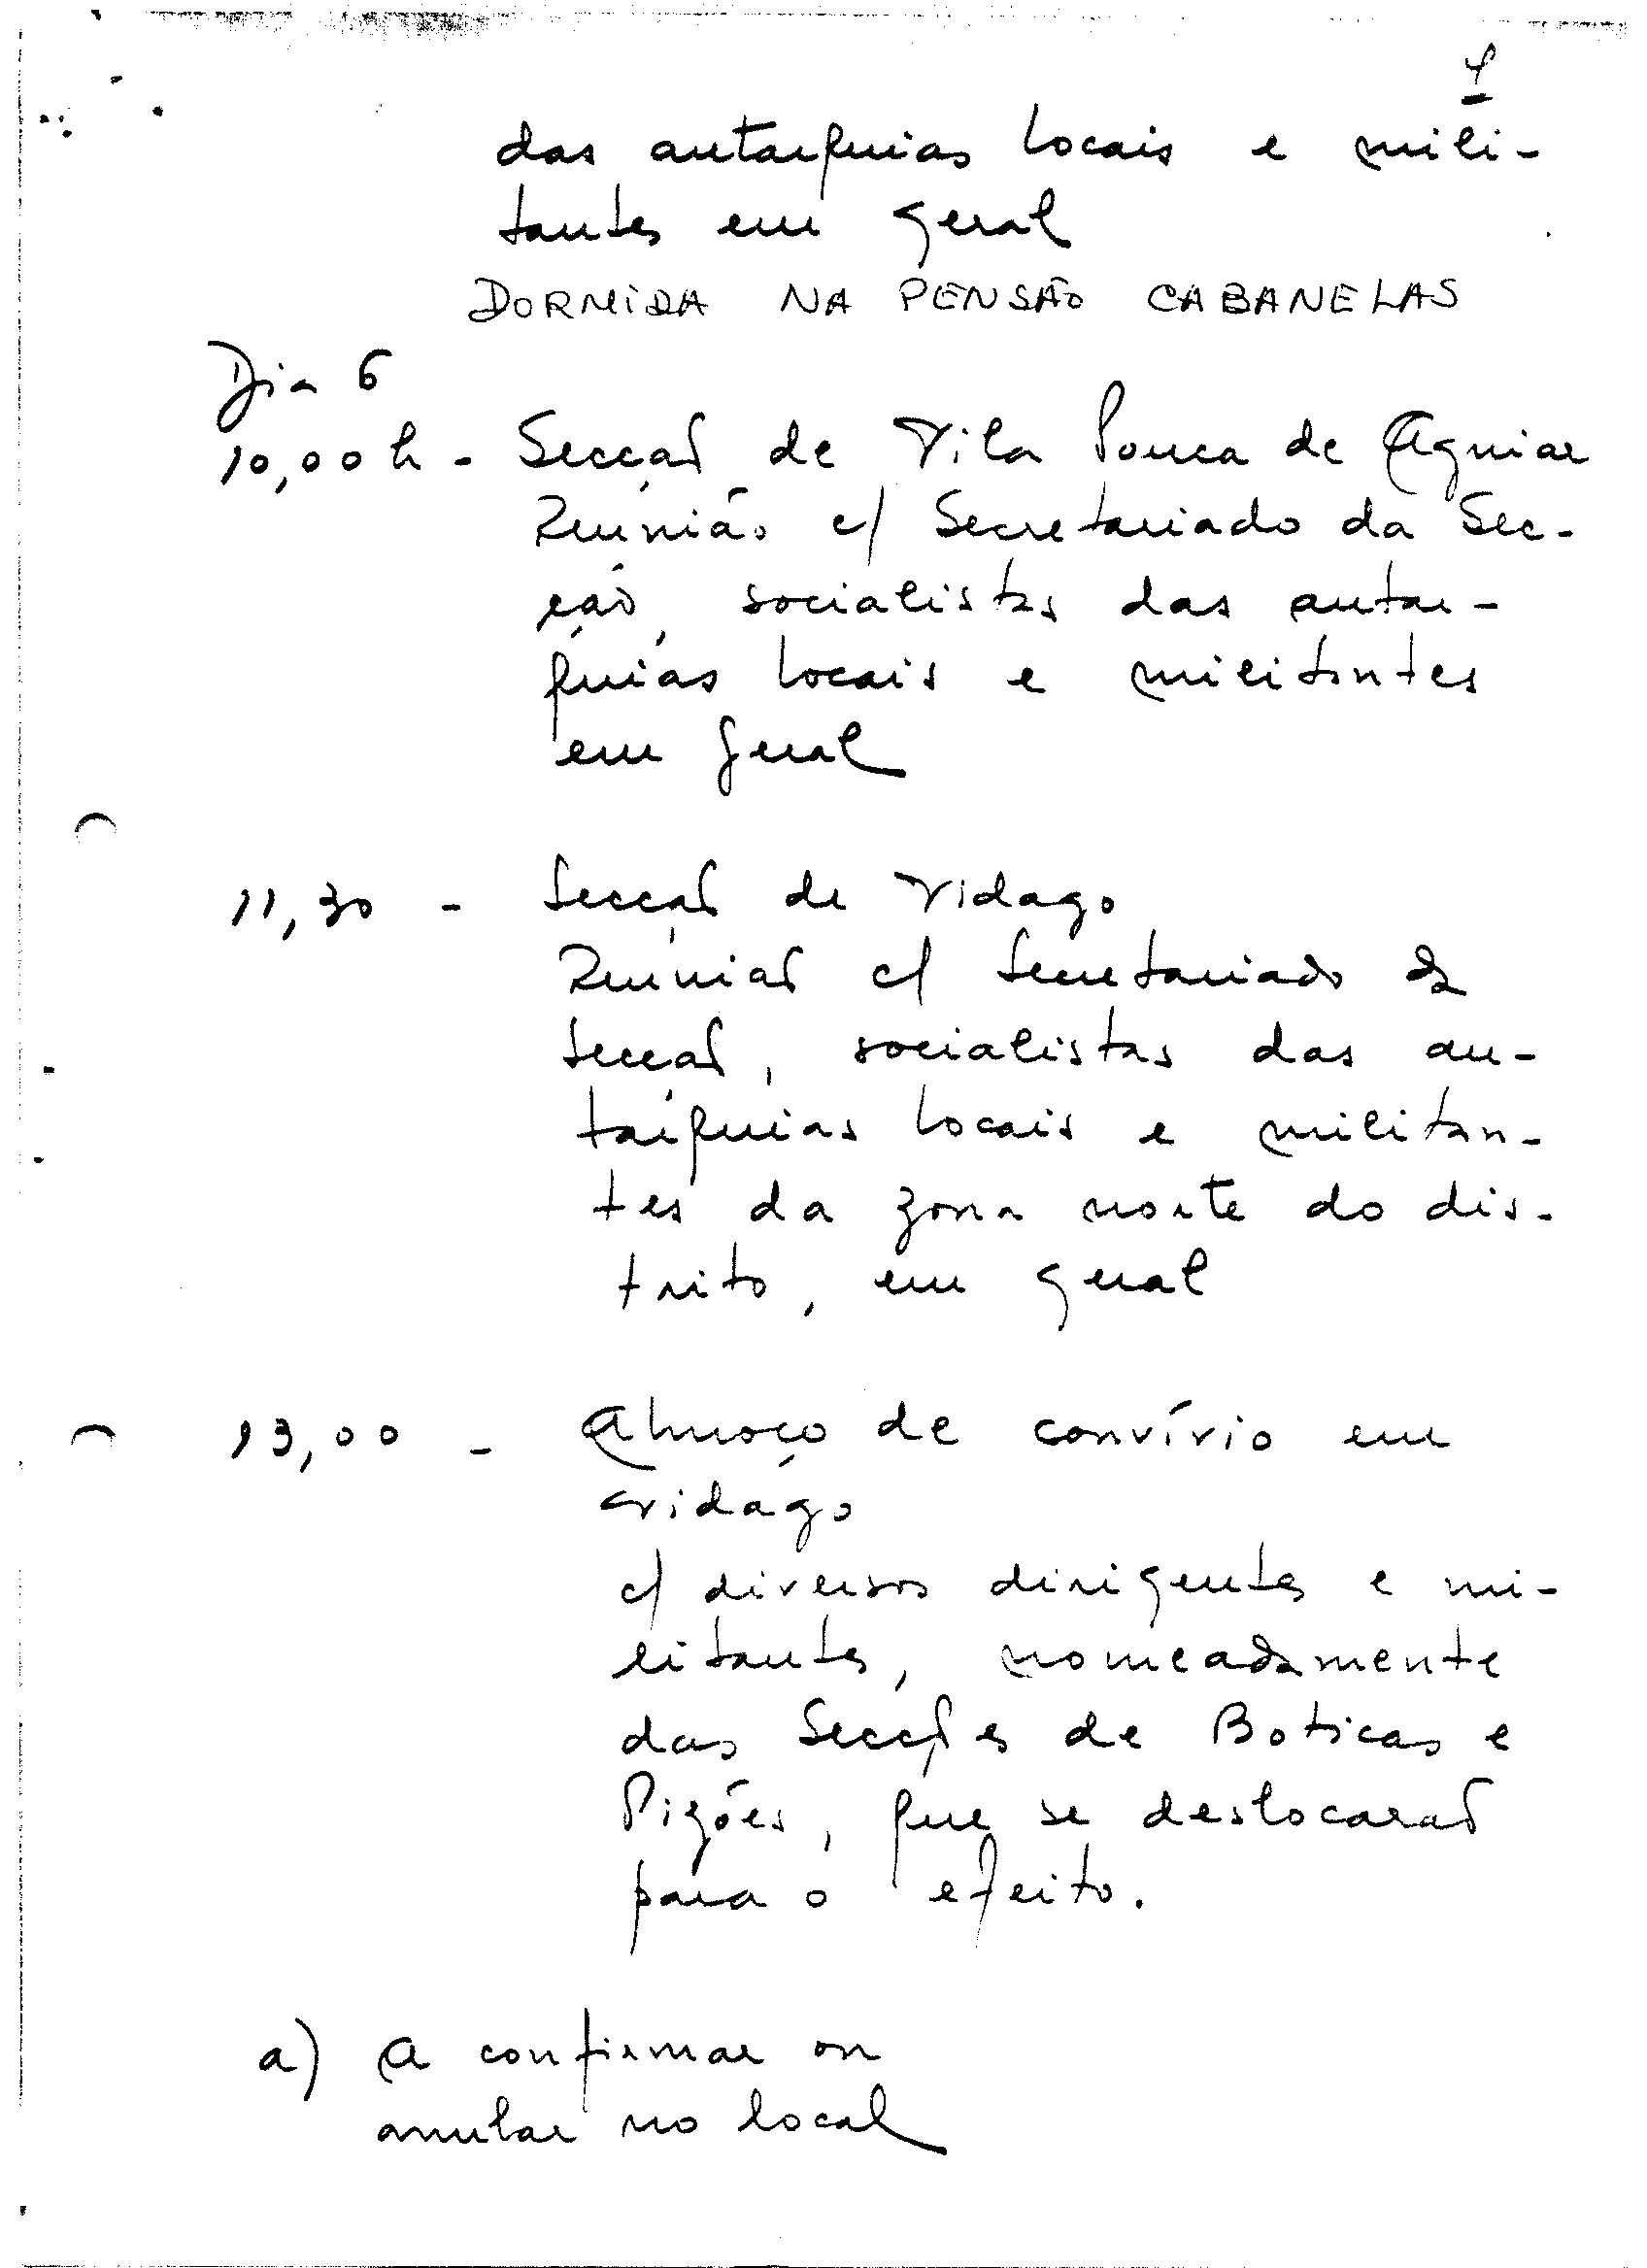 das autarquias locais e mili-
tantes em geral
DORMIDA NA PENSÃO CABANELAS
Dia 6
10,00 h - Secção de Vila Pouca de Aguiar
Reunião c/ Secretariado da Sec-
ção, socialistas das autar-
quias locais e militantes
em geral
11,30 - Secção de Vidago
Reunião c/ Secretariado da
Secção, socialistas das au-
tarquias locais e militan-
tes da zona norte do dis-
trito, em geral
13,00 - Almoço de convívio em
Vidago
c/ diversos dirigentes e mi-
litantes, nomeadamente
das Secções de Boticas e
Pizões, que se deslocarão
para o efeito.
a) A confirmar ou
anular no local